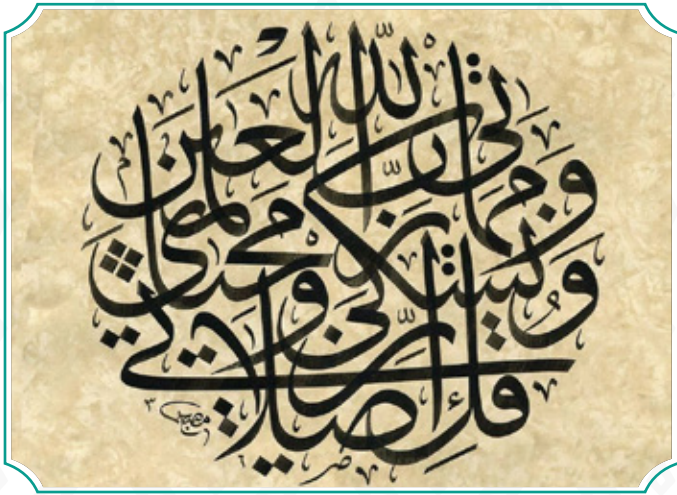 قل إن صلاتي
ونسكي ومحياي
ومماتي لله رب العلمين